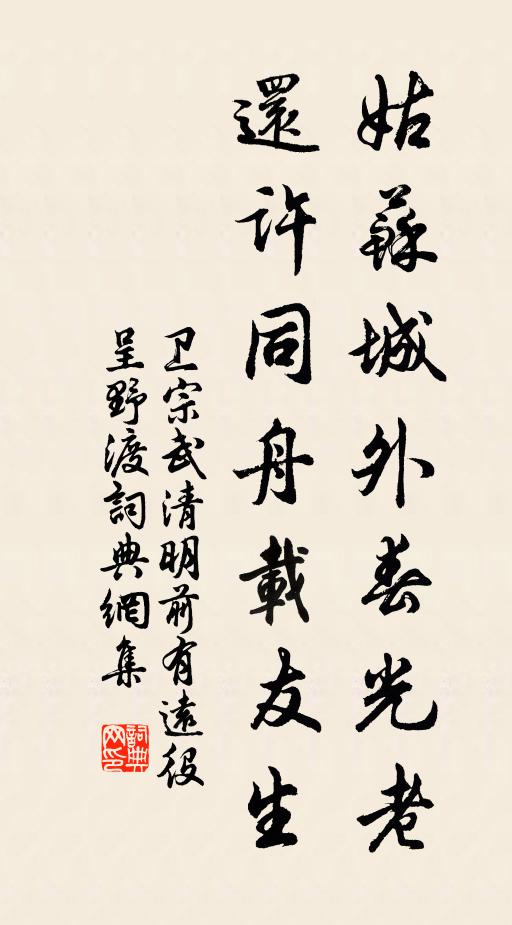 姑蘇城外春光老
還許同舟載友生
卫宗武清明前有遠役
呈野渡詞典網集
詞典网印